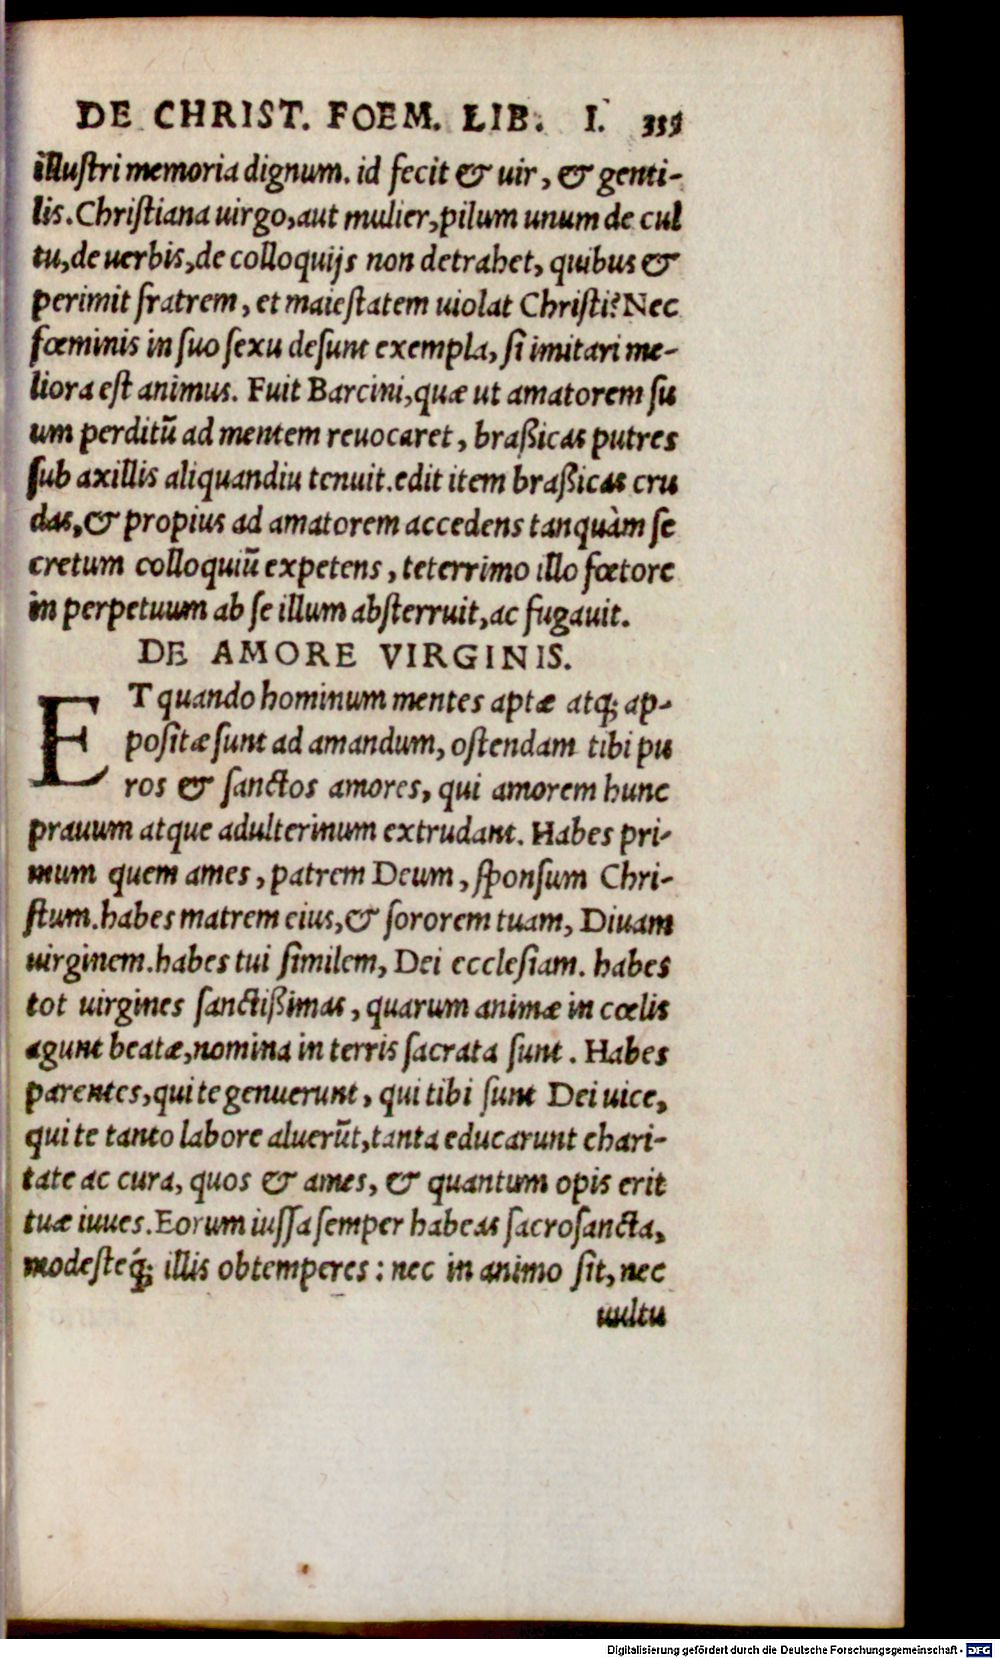 DE CHRIST. FOEM. LIB. I. 335
illuſtri memoria dignum. id fecit & uir, & genti-
lis. Chriſtiana uirgo, aut mulier, pilum unum de cul
tu, de uerbis, de colloquijs non detrahet, quibus &
perimit fratrem, et maieſtatem uiolat Chriſti? Nec
fœminis in ſuo ſexu deſunt exempla, ſi imitari me-
liora est animus. Fuit Barcini, quæ ut amatorem ſu
um perditũ ad mentem reuocaret, braßicas putres
ſub axillis aliquandiu tenuit. edit item braßicas cru
das, & propius ad amatorem accedens tanquàm ſe
cretum colloquiũ expetens, teterrimo illo fœtore
in perpetuum ab ſe illum abſterruit, ac fugauit.
DE AMORE VIRGINIS.
ET quando hominum mentes aptæ atq; ap-
poſitæ ſunt ad amandum, oſtendam tibi pu
ros & ſanctos amores, qui amorem hunc
prauum atque adulterinum extrudant. Habes pri-
mum quem ames, patrem Deum, ſponſum Chri-
ſtum. habes matrem eius, & ſororem tuam, Diuam
uirginem. habes tui ſimilem, Dei eccleſiam. habes
tot uirgines ſanctißimas, quarum animæ in cœlis
agunt beatæ, nomina in terris ſacrata ſunt. Habes
parentes, qui te genuerunt, qui tibi ſunt Dei uice,
qui te tanto labore aluerũt, tanta educarunt chari-
tate ac cura, quos & ames, & quantum opis erit
tuæ iuues. Eorum iuſſa ſemper habeas ſacroſancta,
modeſteq́; illis obtemperes: nec in animo ſit, nec
uultu
Digitalisierung gefördert durch die Deutsche Forschungsgemeinschaft - DFG